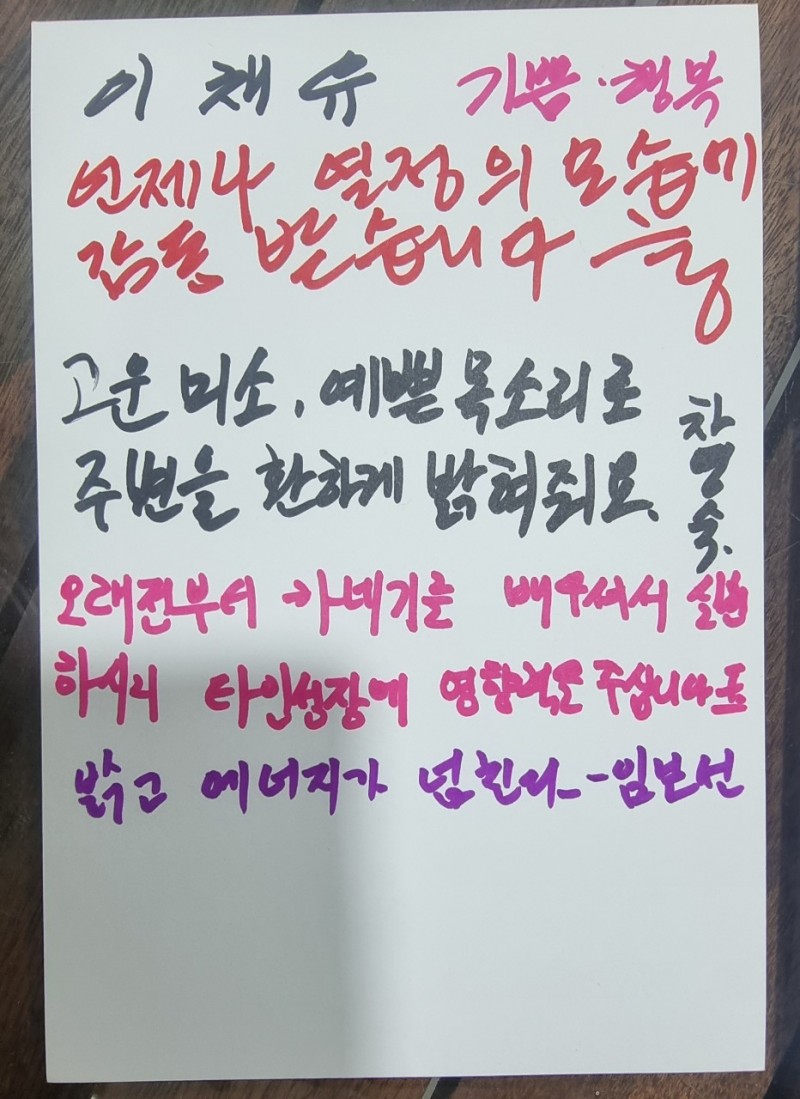 이 채유 기쁨·행복
언제나 열정의 모습이
감동 받습니다
고운 미소, 예쁜 목소리로
주변을 환하게 밝혀줘요.
오래전부터 카네기를 배우셔서 실천
하시고 타인성장에 영향력을 주십니다
밝고 에너지가 넘친다--임보선